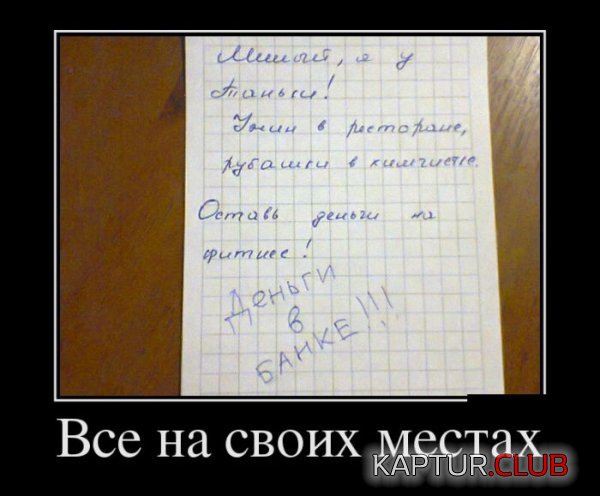 Милый, я у
Таньки!
Ужин в ресторане,
рубашки в химчистке.
Оставь деньги на
фитнес!
Деньги
в
БАНКЕ!!!
Все на своих местах
KAPTUR.CLUB